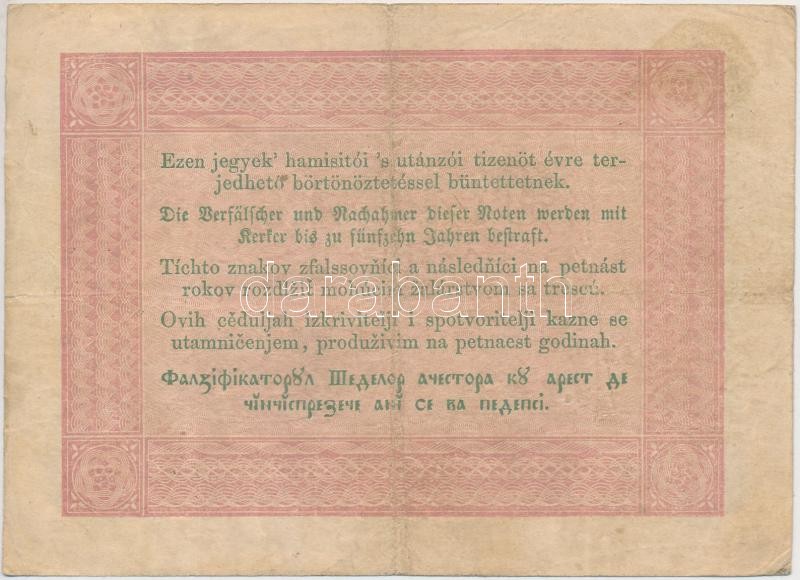 Ezen jegyek’ hamisitói ’s utánzói tizenöt évre ter-
jedhető börtönöztetéssel büntettetnek.
Die Verfälscher und Nachahmer dieser Noten werden mit
Kerker bis zu fünfzehn Jahren bestraft.
Tíchto znakov zfalssovňíci a následňíci na petnást
rokov
darabanth
Ovih cĕduljah izkrivitelji i spotvoritelji kazne se
utamničenjem, produživim na petnaest godinah.
Фалзіфікаторꙋл Шеделор ачестора кꙋ арест де
чінчіспрезече ані се ва педепсі.